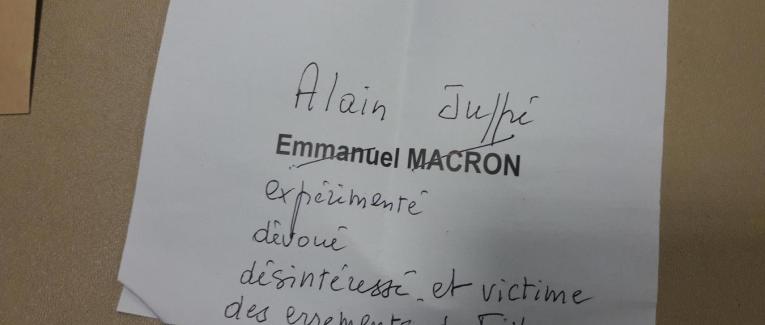 Alain Juppé
Emmanuel MACRON
expérimenté
dévoué
désintéressé et victime
des errements